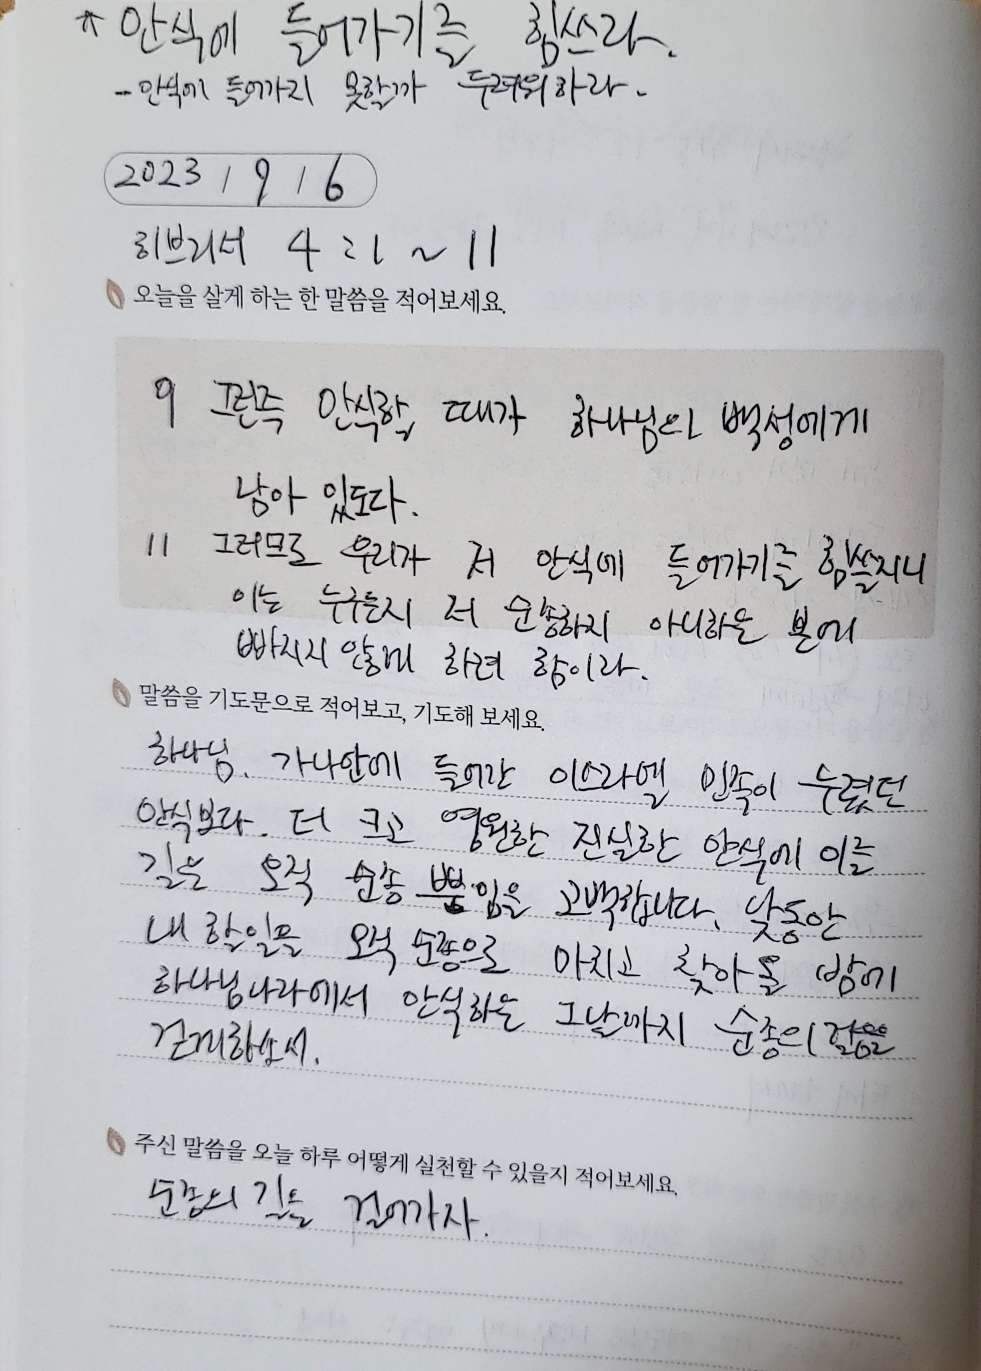 * 안식에 들어가기를 힘쓰라.
- 안식에 들어가지 못할까 두려워하라.
2023 / 9 / 6
히브리서 4:1 ~ 11
오늘을 살게 하는 한 말씀을 적어보세요.
9 그런즉 안식할 때가 하나님의 백성에게
남아 있도다.
11 그러므로 우리가 저 안식에 들어가기를 힘쓸지니
이는 누구든지 저 순종하지 아니하는 본에
빠지지 않게 하려 함이라.
말씀을 기도문으로 적어보고, 기도해 보세요.
하나님. 가나안에 들어간 이스라엘 민족이 누렸던
안식보다. 더 크고 영원한 진실한 안식에 이를
길은 오직 순종 뿐임을 고백합니다. 낮동안
내 할일을 오직 순종으로 마치고 찾아올 밤에
하나님나라에서 안식하는 그날까지 순종의 길을
걷게하소서.
주신 말씀을 오늘 하루 어떻게 실천할 수 있을지 적어보세요.
순종의 길을 걸어가자.